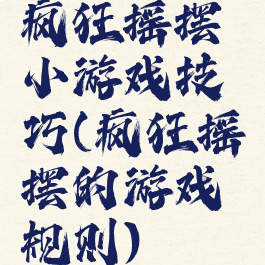 疯狂摇摆
小游戏技
巧(疯狂摇
摆的游戏
规则)